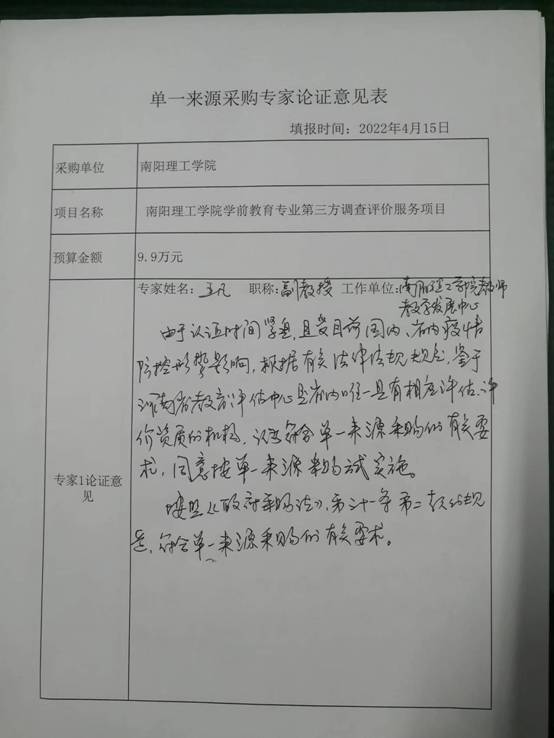 单一来源采购专家论证意见表
填报时间：2022年4月15日
采购单位 南阳理工学院
项目名称 南阳理工学院学前教育专业第三方调查评价服务项目
预算金额 9.9万元
专家姓名：王凡 职称：副教授 工作单位：南阳理工学院教师
教学发展中心
由于认证时间紧急，且受目前国内、省内疫情
防控形势影响，根据有关法律法规规定，鉴于
河南省教育评估中心是省内唯一具有相应评估、评
价资质的机构，认为符合单一来源采购的有关要
求，同意按单一来源采购方式实施。
专家1论证意
见
按照《政府采购法》，第三十一条第二款的规
定，符合单一来源采购的有关要求。